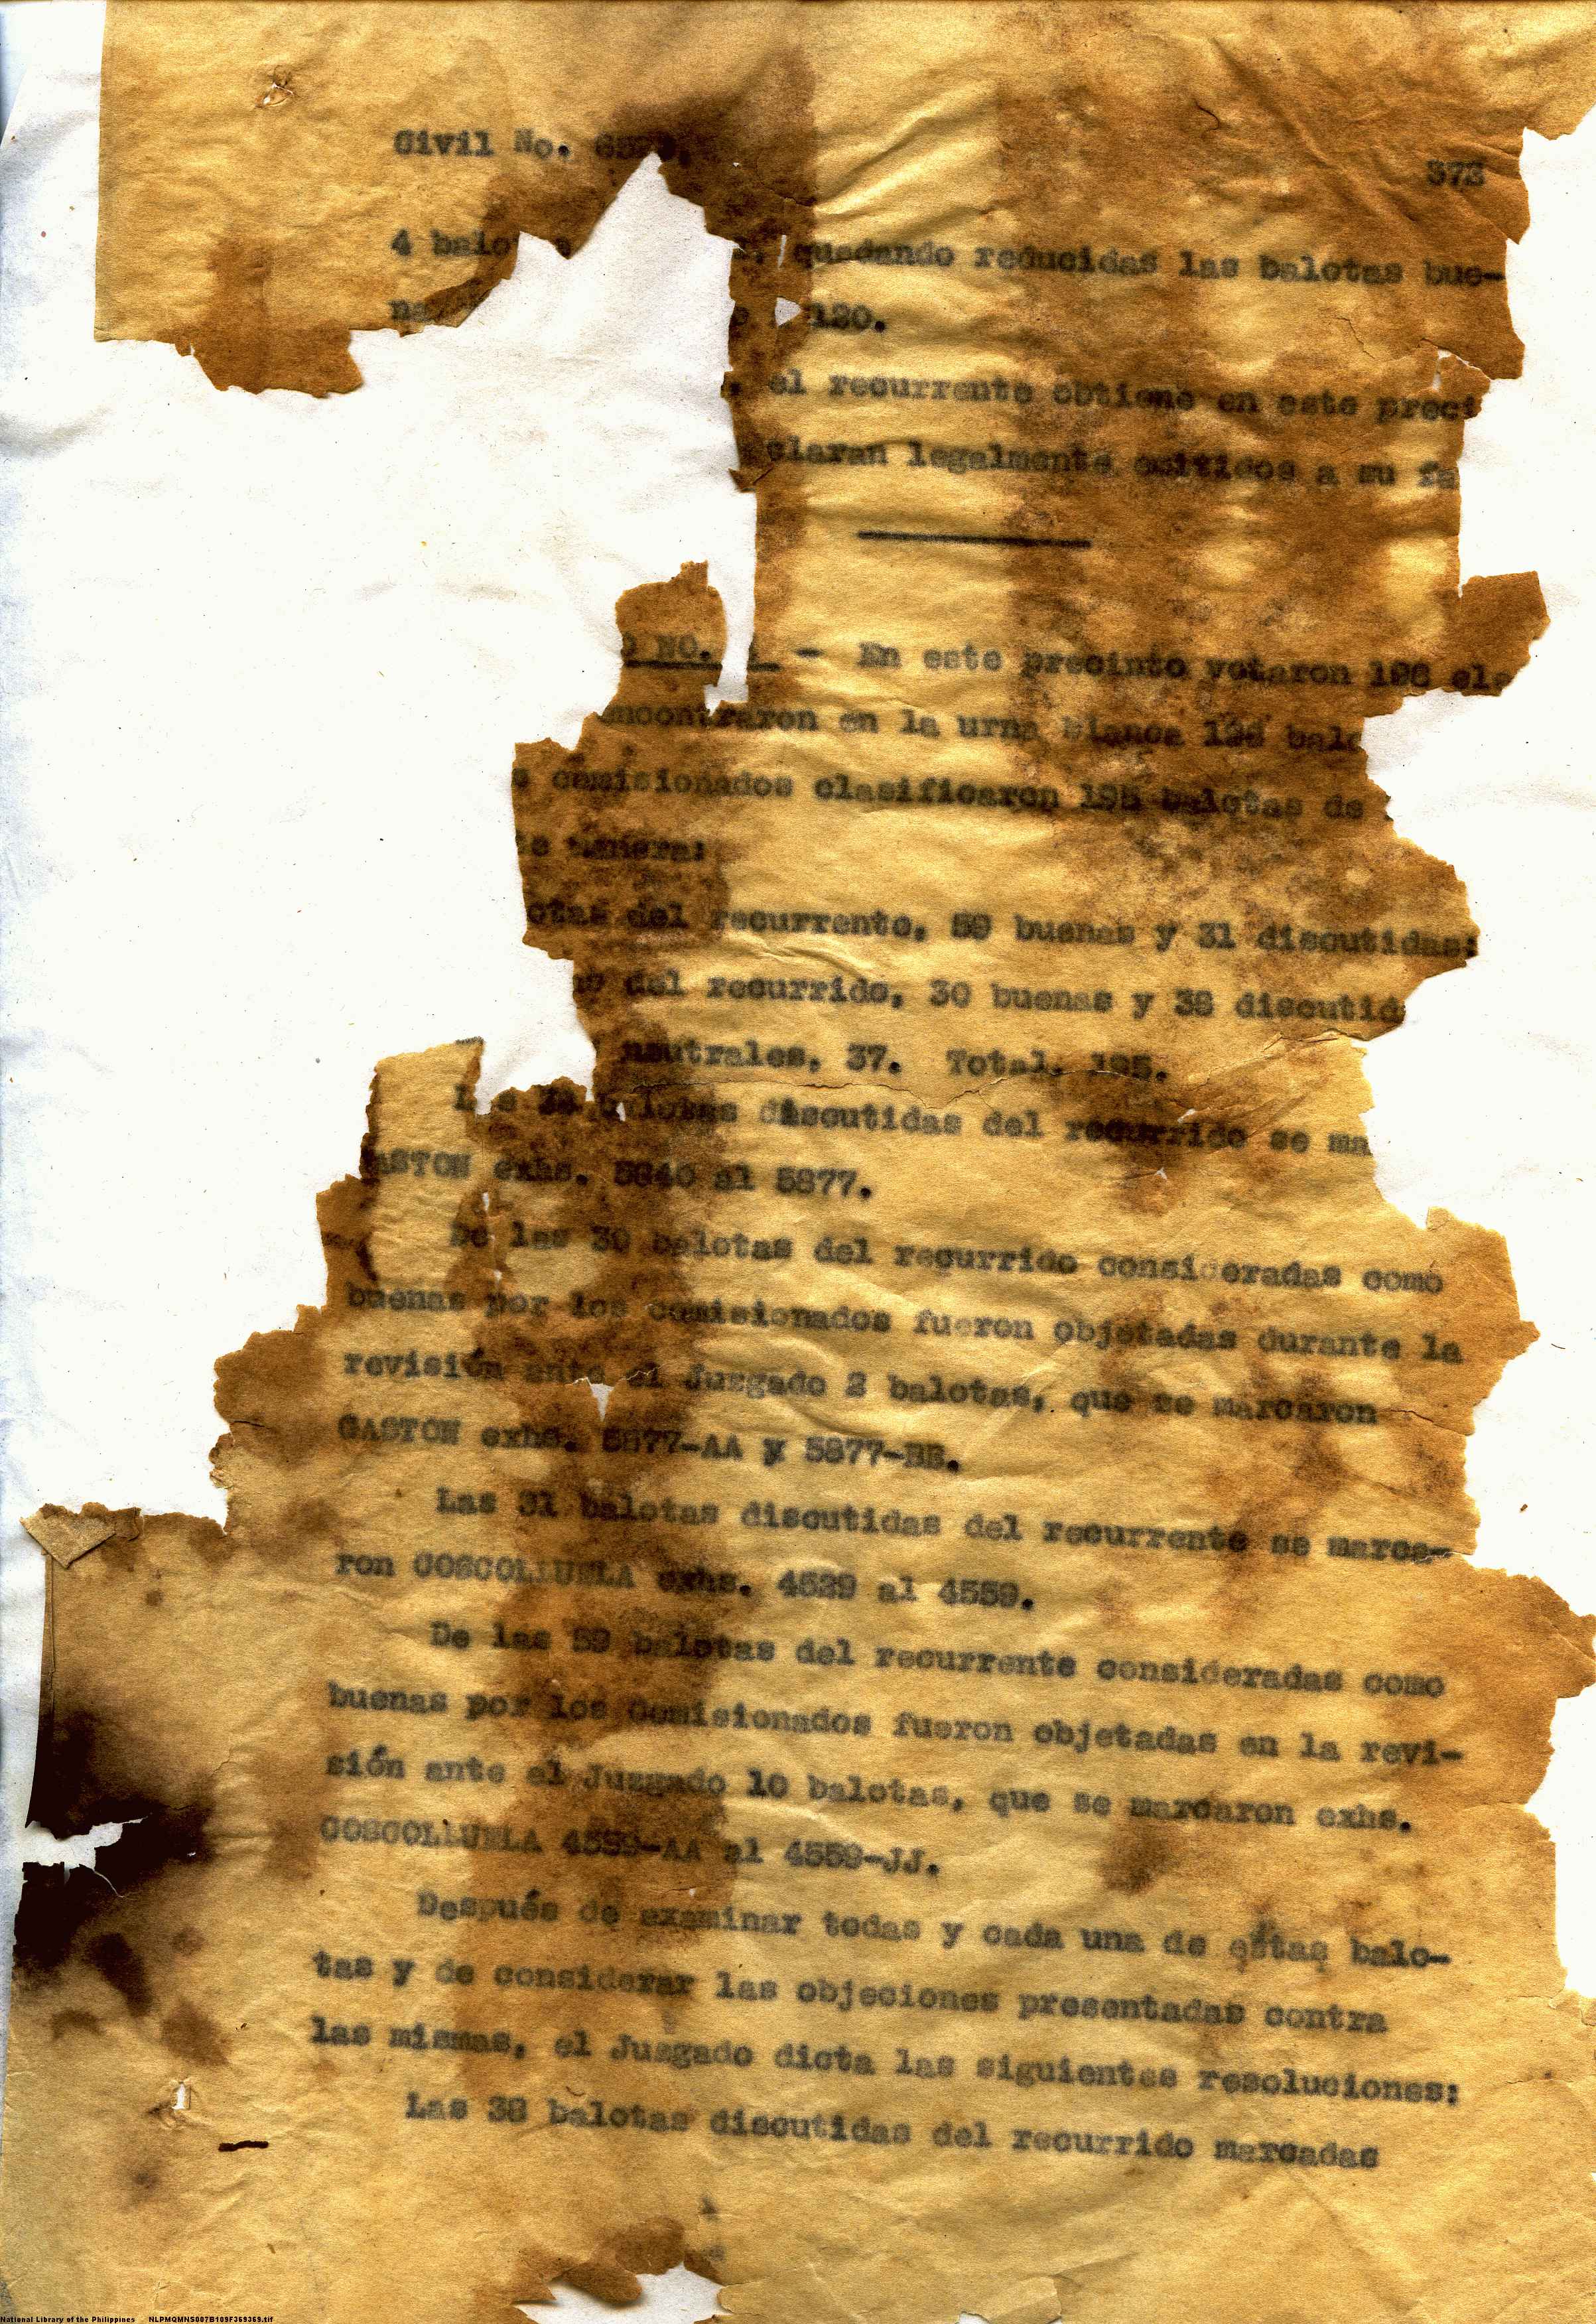 Civil No.
373
4 balo quedando reducidas las balotas bue-
na 120.
el recurrente obtiene en este preci
claran legalmente emitidos a su fa
O NO. - En este precinto votaron 196 ele
encontraron en la urna blanca balo
s comisionados clasificaron 195 balotas de
te manera:
otas del recurrente, 59 buenas y 31 discutidas;
del recurrido, 30 buenas y 38 discutid
neutrales, 37. Total, 195.
balotas discutidas del recurrido se ma
ASTON exhs. 5840 al 5877.
De las 30 balotas del recurrido consideradas como
buenas por los comisionados fueron objetadas durante la
revisión ante el Juzgado 2 balotas, que se marcaron
GASTON exhs. 5877-AA y 5877-BB.
Las 31 balotas discutidas del recurrente se marca-
ron COSCOLLUELA exhs. 4529 al 4559.
De las 59 balotas del recurrente consideradas como
buenas por los Comisionados fueron objetadas en la revi-
sión ante el Juzgado 10 balotas, que se marcaron exhs.
COSCOLLUELA 4559-AA al 4559-JJ.
Después de examinar todas y cada una de estas balo-
tas y de considerar las objeciones presentadas contra
las mismas, el Juzgado dicta las siguientes resoluciones:
Las 38 balotas discutidas del recurrido marcadas
National Library of the Philippines NLPMQMNS007B109F369369.tif